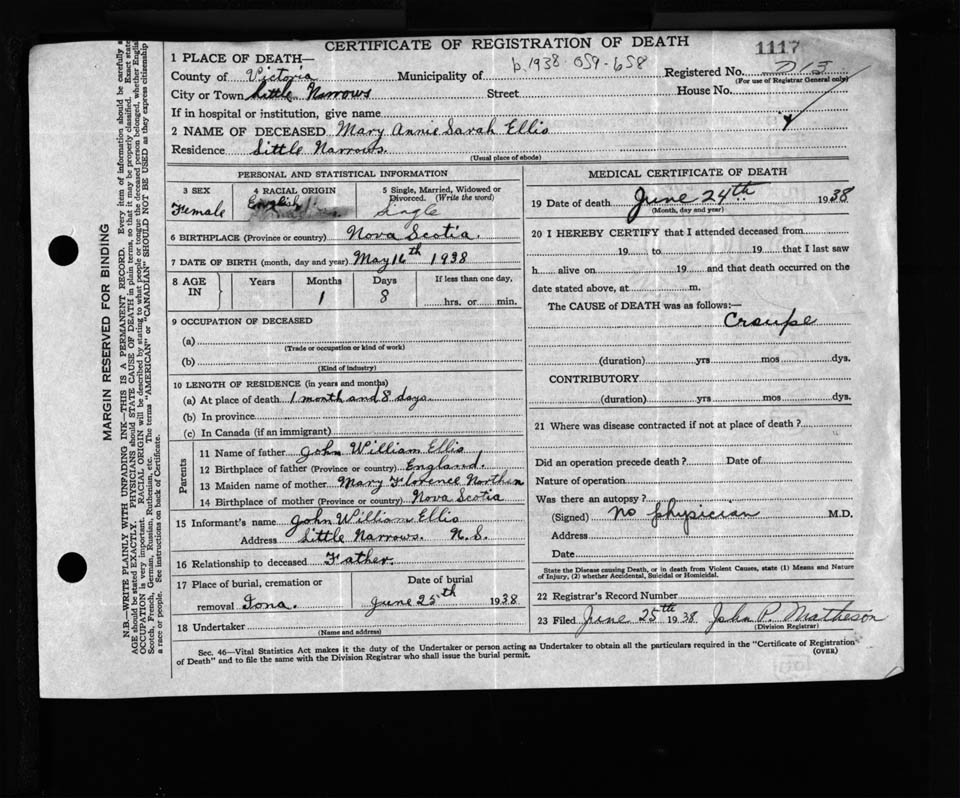 CERTIFICATE OF REGISTRATION OF DEATH
1117
b.1938-059-658
1 PLACE OF DEATH—
County of Victoria Municipality of Registered No.
(For use of Registrar General only)
City or Town Little Narrows Street House No.
If in hospital or institution, give name
2 NAME OF DECEASED Mary Annie Sarah Ellis
Residence Little Narrows.
(Usual place of abode)
PERSONAL AND STATISTICAL INFORMATION
3 SEX 4 RACIAL ORIGIN 5 Single, Married, Widowed or Divorced. (Write the word)
Female English Single
6 BIRTHPLACE (Province or country) Nova Scotia.
7 DATE OF BIRTH (month, day and year) May 16th 1938
8 AGE IN Years Months Days If less than one day,
1 8 hrs. or min.
9 OCCUPATION OF DECEASED
(a)
(Trade or occupation or kind of work)
(b)
(Kind of industry)
10 LENGTH OF RESIDENCE (in years and months)
(a) At place of death 1 month and 8 days.
(b) In province
(c) In Canada (if an immigrant)
Parents
11 Name of father John William Ellis
12 Birthplace of father (Province or country) England.
13 Maiden name of mother Mary Florence
14 Birthplace of mother (Province or country) Nova Scotia
15 Informant's name John William Ellis
Address Little Narrows. N.S.
16 Relationship to deceased Father.
17 Place of burial, cremation or Date of burial
removal Iona. June 25th 1938
18 Undertaker
(Name and address)
MEDICAL CERTIFICATE OF DEATH
19 Date of death June 24th 1938
(Month, day and year)
20 I HEREBY CERTIFY that I attended deceased from
19 to 19 that I last saw
h alive on 19 and that death occurred on the
date stated above, at m.
The CAUSE of DEATH was as follows:—
Croupe
(duration) yrs mos dys.
CONTRIBUTORY
(duration) yrs mos dys.
21 Where was disease contracted if not at place of death?
Did an operation precede death? Date of
Nature of operation
Was there an autopsy?
(Signed) No physician M.D.
Address
Date
State the Disease causing Death, or in death from Violent Causes, state (1) Means and Nature of Injury, (2) whether Accidental, Suicidal or Homicidal.
22 Registrar's Record Number
23 Filed June 25th 1938 John P. Matheson
(Division Registrar)
Sec. 46—Vital Statistics Act makes it the duty of the Undertaker or person acting as Undertaker to obtain all the particulars required in the "Certificate of Registration
of Death" and to file the same with the Division Registrar who shall issue the burial permit. (OVER)
MARGIN RESERVED FOR BINDING
N.B.—WRITE PLAINLY WITH UNFADING INK—THIS IS A PERMANENT RECORD. Every item of information should be carefully
AGE should be stated EXACTLY. PHYSICIANS should STATE CAUSE OF DEATH in plain terms, so that it may be properly classified. Exact
OCCUPATION is very important. RACIAL ORIGIN will be described by stating to what people or tongue the deceased person belonged, whether
Scotch, French, German, Russian, Ruthenian, etc. The terms "AMERICAN" or "CANADIAN" SHOULD NOT BE USED as they express citizenship
a race or people. See instructions on back of Certificate.